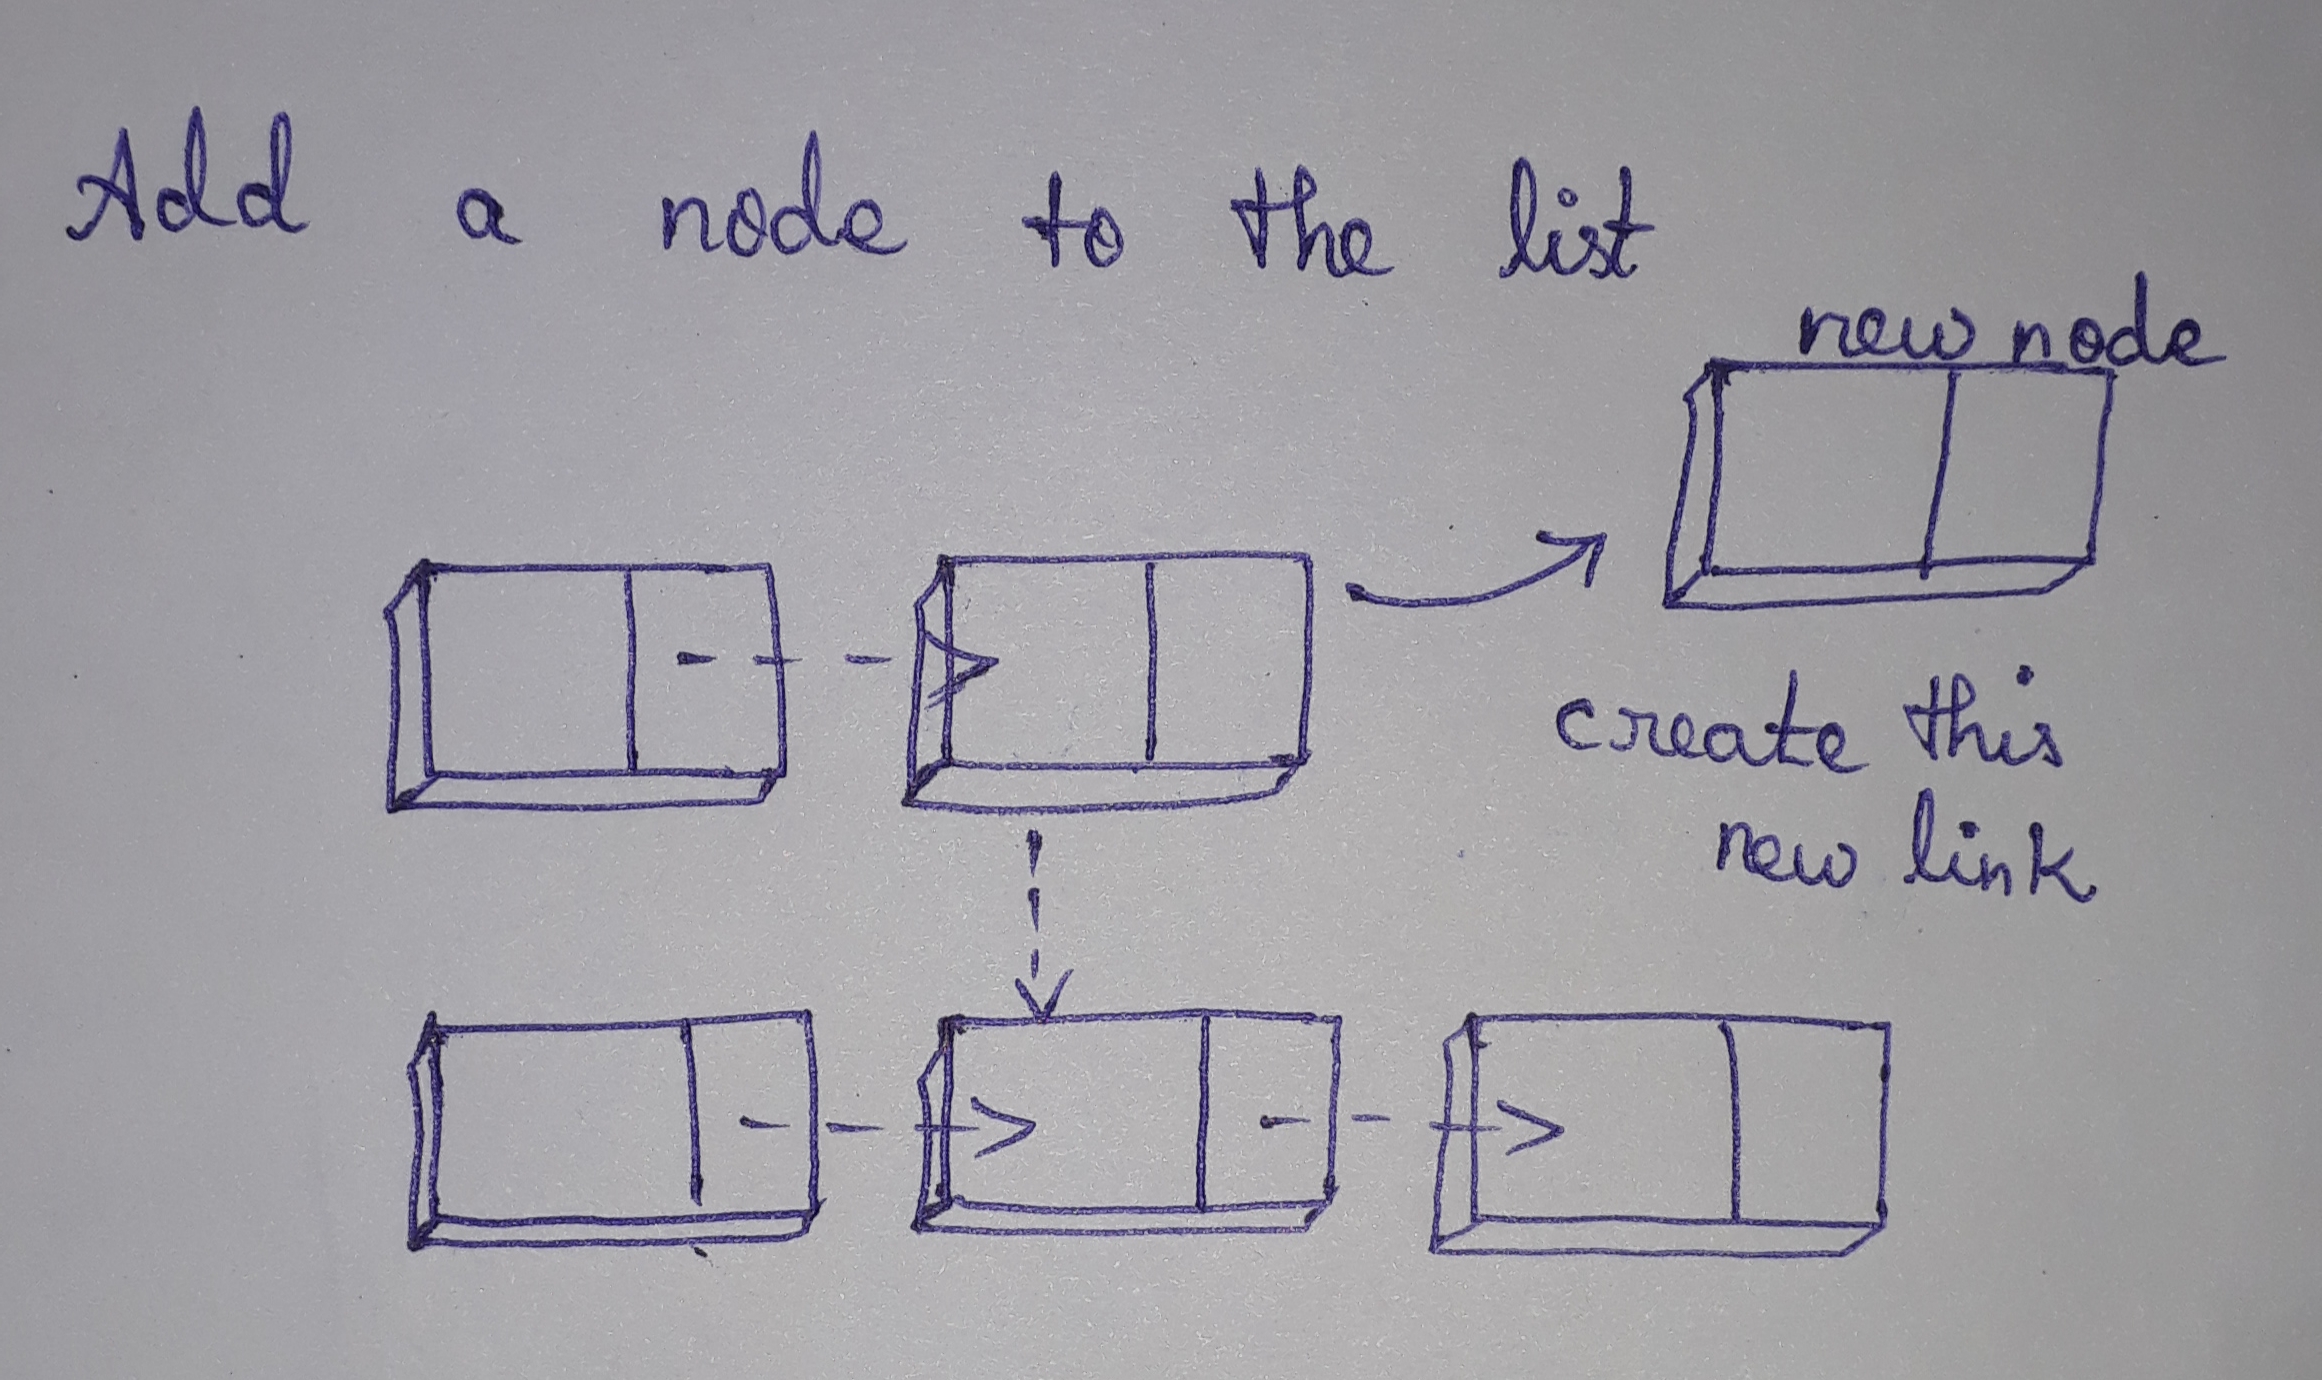 Add a node to the list
new node
create this
new link